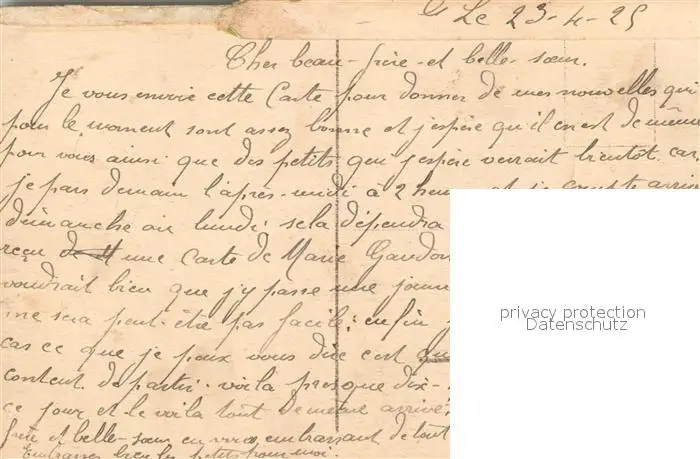 Le 23-4-25
Cher beau-frère et belle-sœur.
Je vous envoie cette Carte pour donner de mes nouvelles qui
pour le moment sont assez bonne et j'espère qu'il en est de même
pour vous ainsi que des petits que j'espère verrait bientot. car
je pars demain l'après-midi à 2 heu et je compte arriv
dimanche ou lundi sela dépendra
reçu une Carte de Marie
voudrait bien que j'y passe une journ
me sera peut-être pas facile; enfin
cas ce que je peux vous dire c'est
content de partir. voila presque dix-
ce jour et le voila tout de même arrivé;
frère et belle-sœur en vous embrassant de tout
Embrasser bien les petits pour moi.
privacy protection
Datenschutz